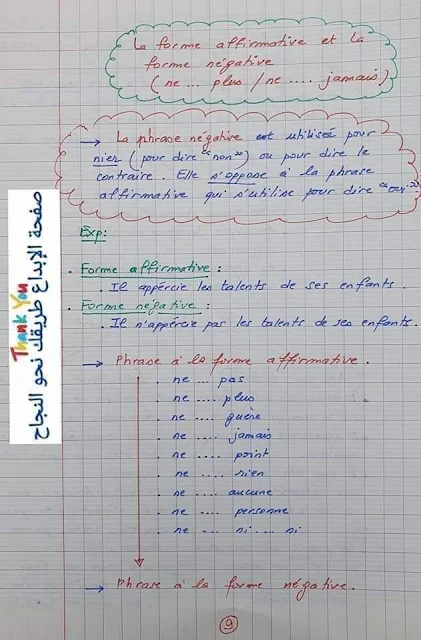 La forme affirmative et la
forme négative
(ne ... plus / ne .... jamais)
→ La phrase négative est utilisée pour
nier (pour dire "non") ou pour dire le
contraire. Elle s'oppose à la phrase
affirmative qui s'utilise pour dire "oui".
Exp:
. Forme affirmative :
. Il appércie les talents de ses enfants.
. Forme négative :
. Il n'appércie pas les talents de ses enfants.
→ Phrase à la forme affirmative.
. ne ... pas
. ne .... plus
. ne .... guère
. ne .... jamais
. ne .... point
. ne .... rien
. ne .... aucune
. ne .... personne
. ne ... ni .... ni
→ Phrase à la forme négative.
9
Thank You
صفحة الإبداع طريقك نحو النجاح